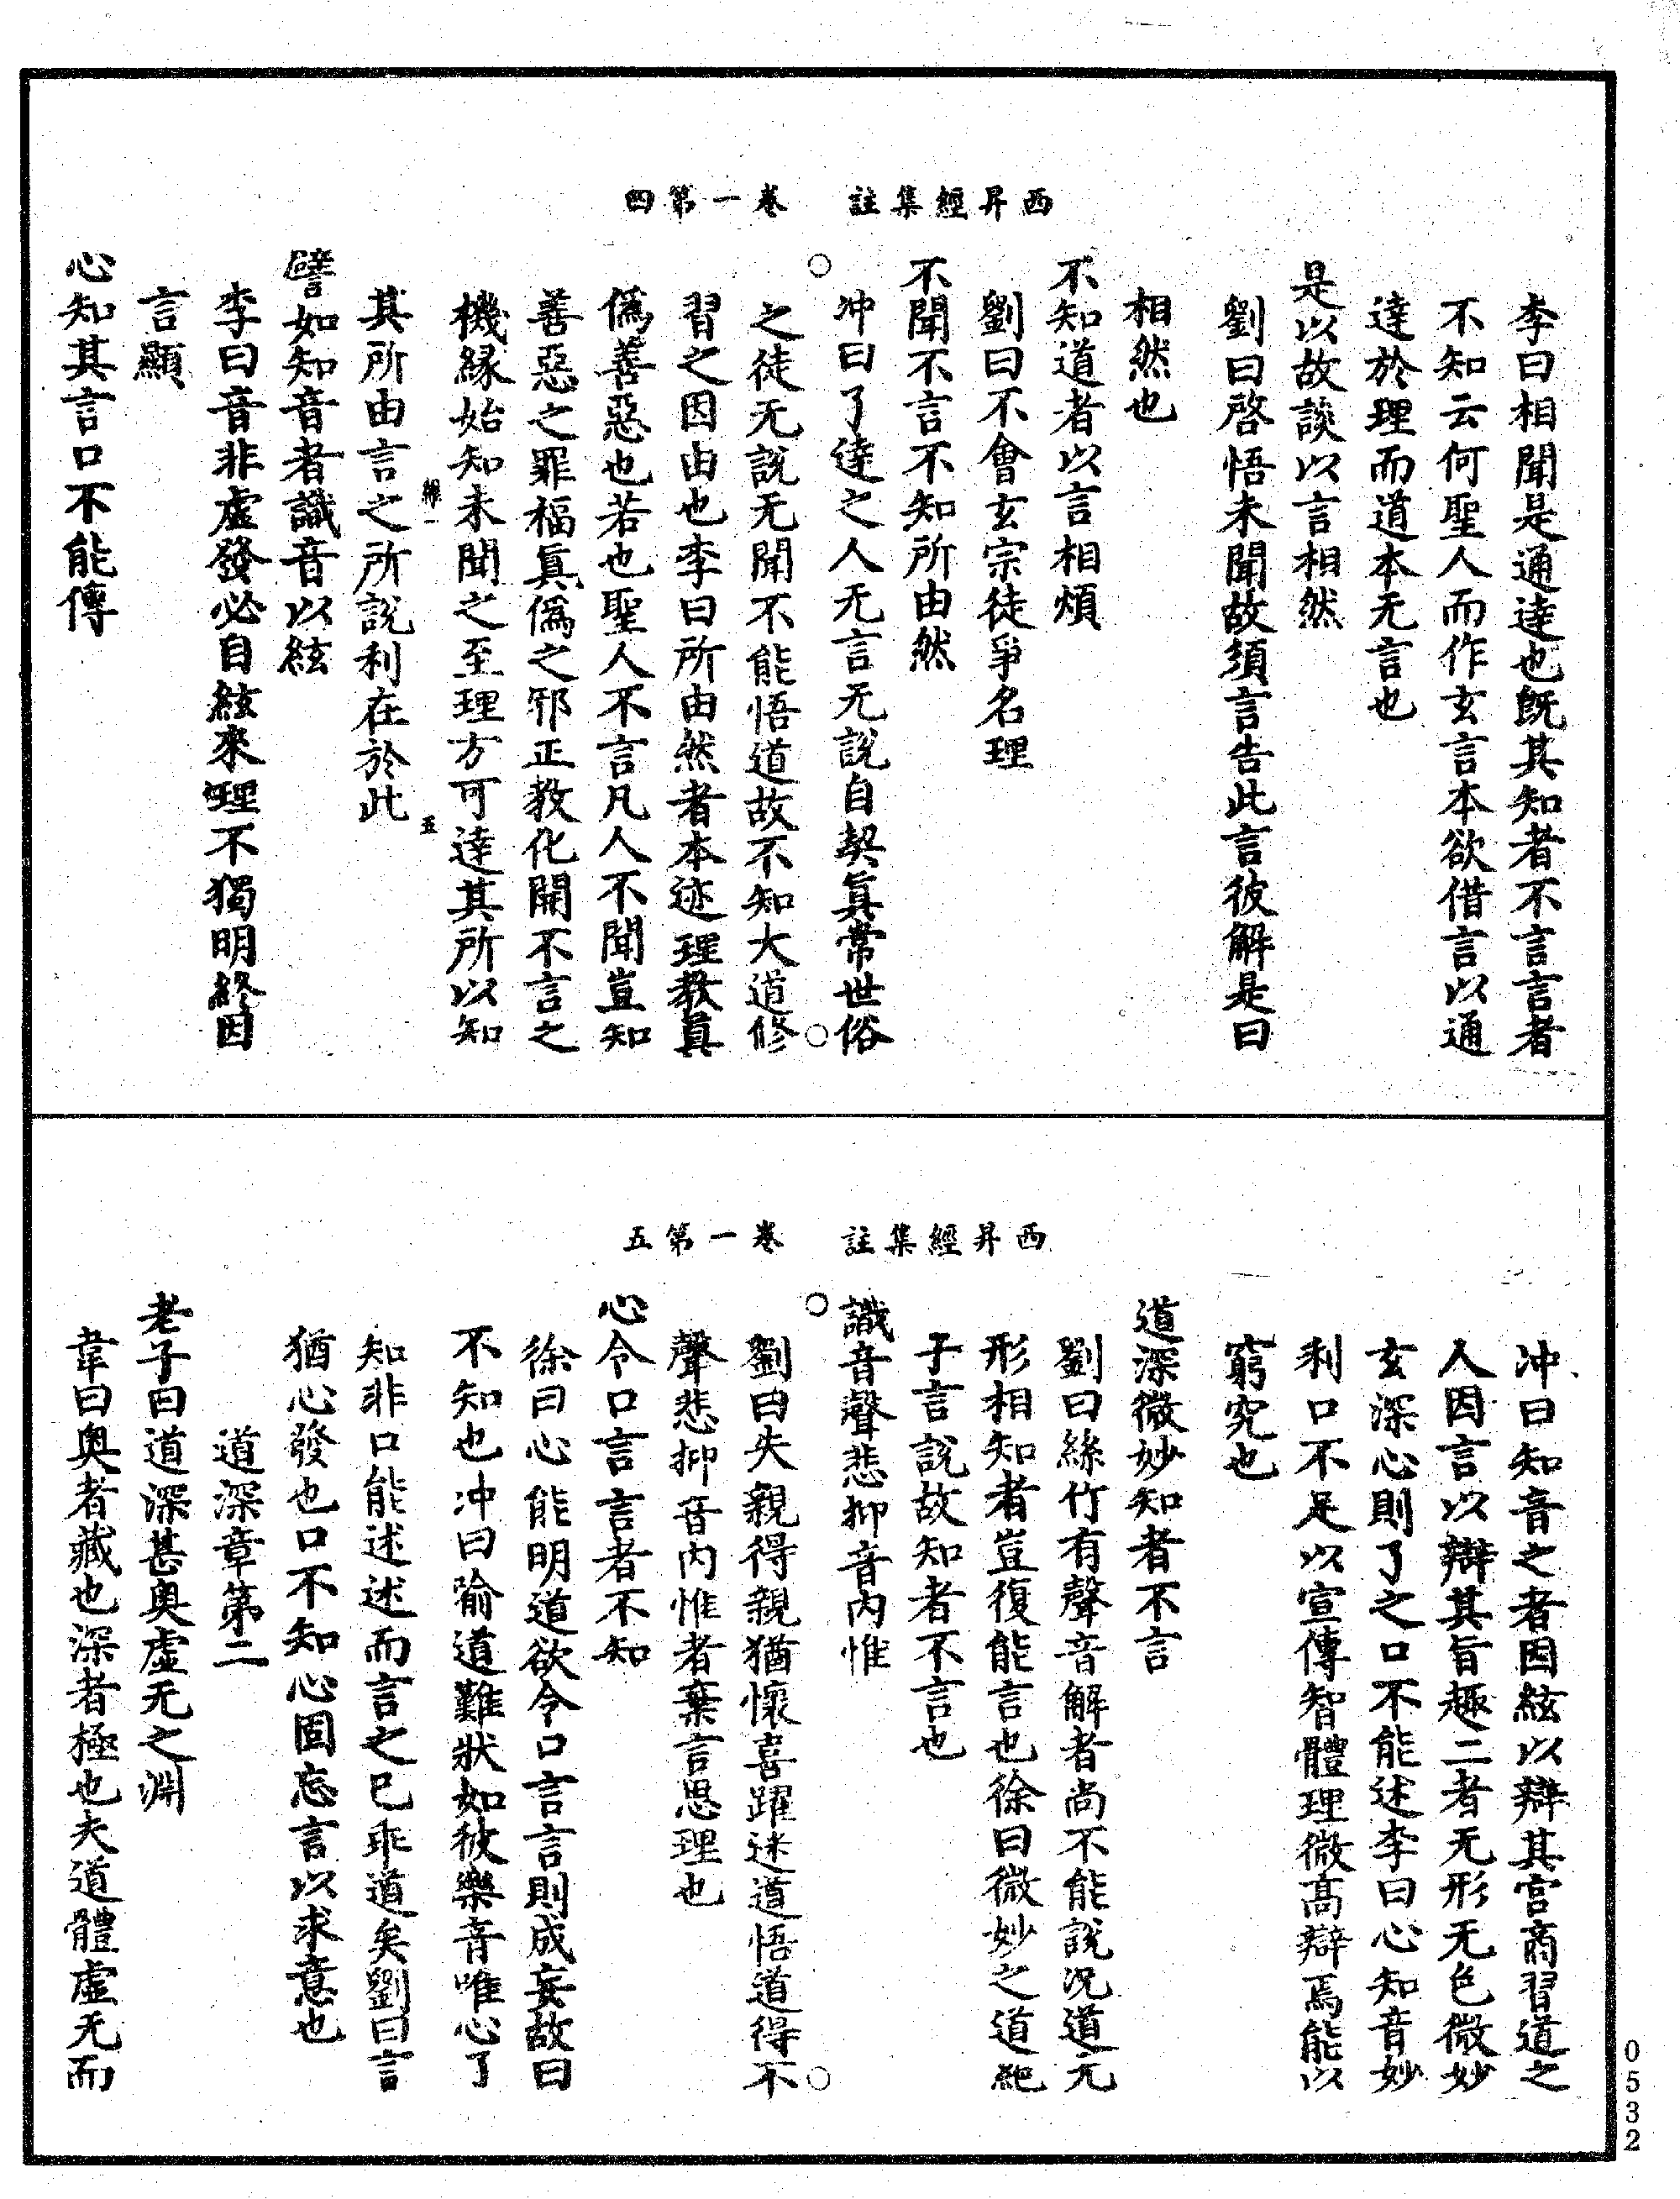 西昇經集註　卷一第四
李曰相聞是通達也既其知者不言言者
不知云何聖人而作玄言本欲借言以通
達於理而道本无言也
是以故談以言相然
劉曰啓悟未聞故須言告此言彼解是曰
相然也
不知道者以言相煩
劉曰不會玄宗徒爭名理
不聞不言不知所由然
冲曰了達之人无言无說自契眞常世俗
之徒无說无聞不能悟道故不知大道修
習之因由也李曰所由然者本迹理教眞
僞善惡也若也聖人不言凡人不聞豈知
善惡之罪福眞僞之邪正教化開不言之
機緣始知未聞之至理方可達其所以知
五
其所由言之所說利在於此
譬如知音者識音以絃
李曰音非虛發必自絃來理不獨明終因
言顯
心知其言口不能傳
西昇經集註　卷一第五
冲曰知音之者因絃以辯其宮商習道之
人因言以辯其旨趣二者无形无色微妙
玄深心則了之口不能述李曰心知音妙
利口不足以宣傳智體理微高辯焉能以
窮究也
道深微妙知者不言
劉曰絲竹有聲音解者尚不能說況道无
形相知者豈復能言也徐曰微妙之道絶
子言說故知者不言也
識音聲悲抑音內惟
劉曰失親得親猶懷喜躍迷道悟道得不
聲悲抑音內惟者棄言思理也
心令口言言者不知
徐曰心能明道欲令口言言則成妄故曰
不知也冲曰喻道難狀如彼樂音唯心了
知非口能述述而言之已乖道矣劉曰言
猶心發也口不知心固忘言以求意也
道深章第二
老子曰道深甚奧虛无之淵
韋曰奧者藏也深者極也夫道體虛无而
0532